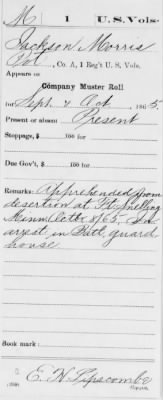 M | 1 | U.S. Vols.
Jackson Morris
Pvt., Co. A, 1 Reg't U.S. Vols.
Appears on
Company Muster Roll
for Sept. & Oct., 1865.
Present or absent Present
Stoppage, $ 100 for
Due Gov't, $ 100 for
Remarks: Apprehended from
desertion at Ft. Snelling
Minn. Octbr 8/65. In
arrest in Batt. guard
house
Book mark:
E. H. Lipscombe
Copyist.